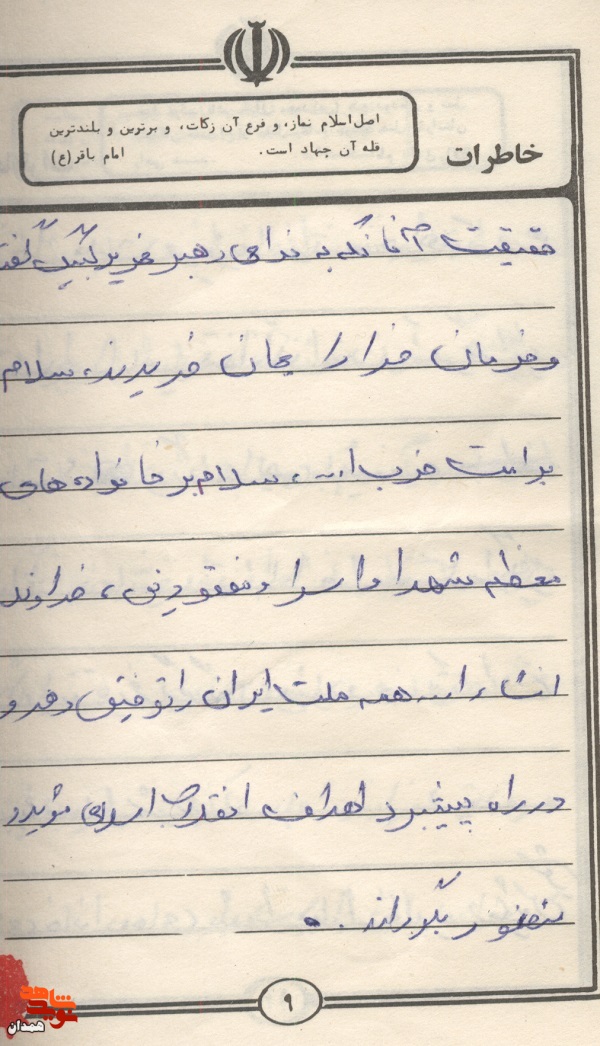 اصل اسلام نماز، و فرع آن زکات، و برترین و بلندترین
قله آن جهاد است. امام باقر(ع)
خاطرات
حقیقت آنانکه به ندای رهبر عزیز لبیک گفتند
و فرمان خدا را بجان خریدند، سلام
بر امت حزب ا...، سلام بر خانواده های
معظم شهدا و اسرا و مفقودین، خداوند
انشاءا... همه ملت ایران را توفیق دهد و
در راه پیشبرد اهداف انقلاب اسلامی مؤید و
منصور بگرداند.
۹
نوید شاهد
همدان